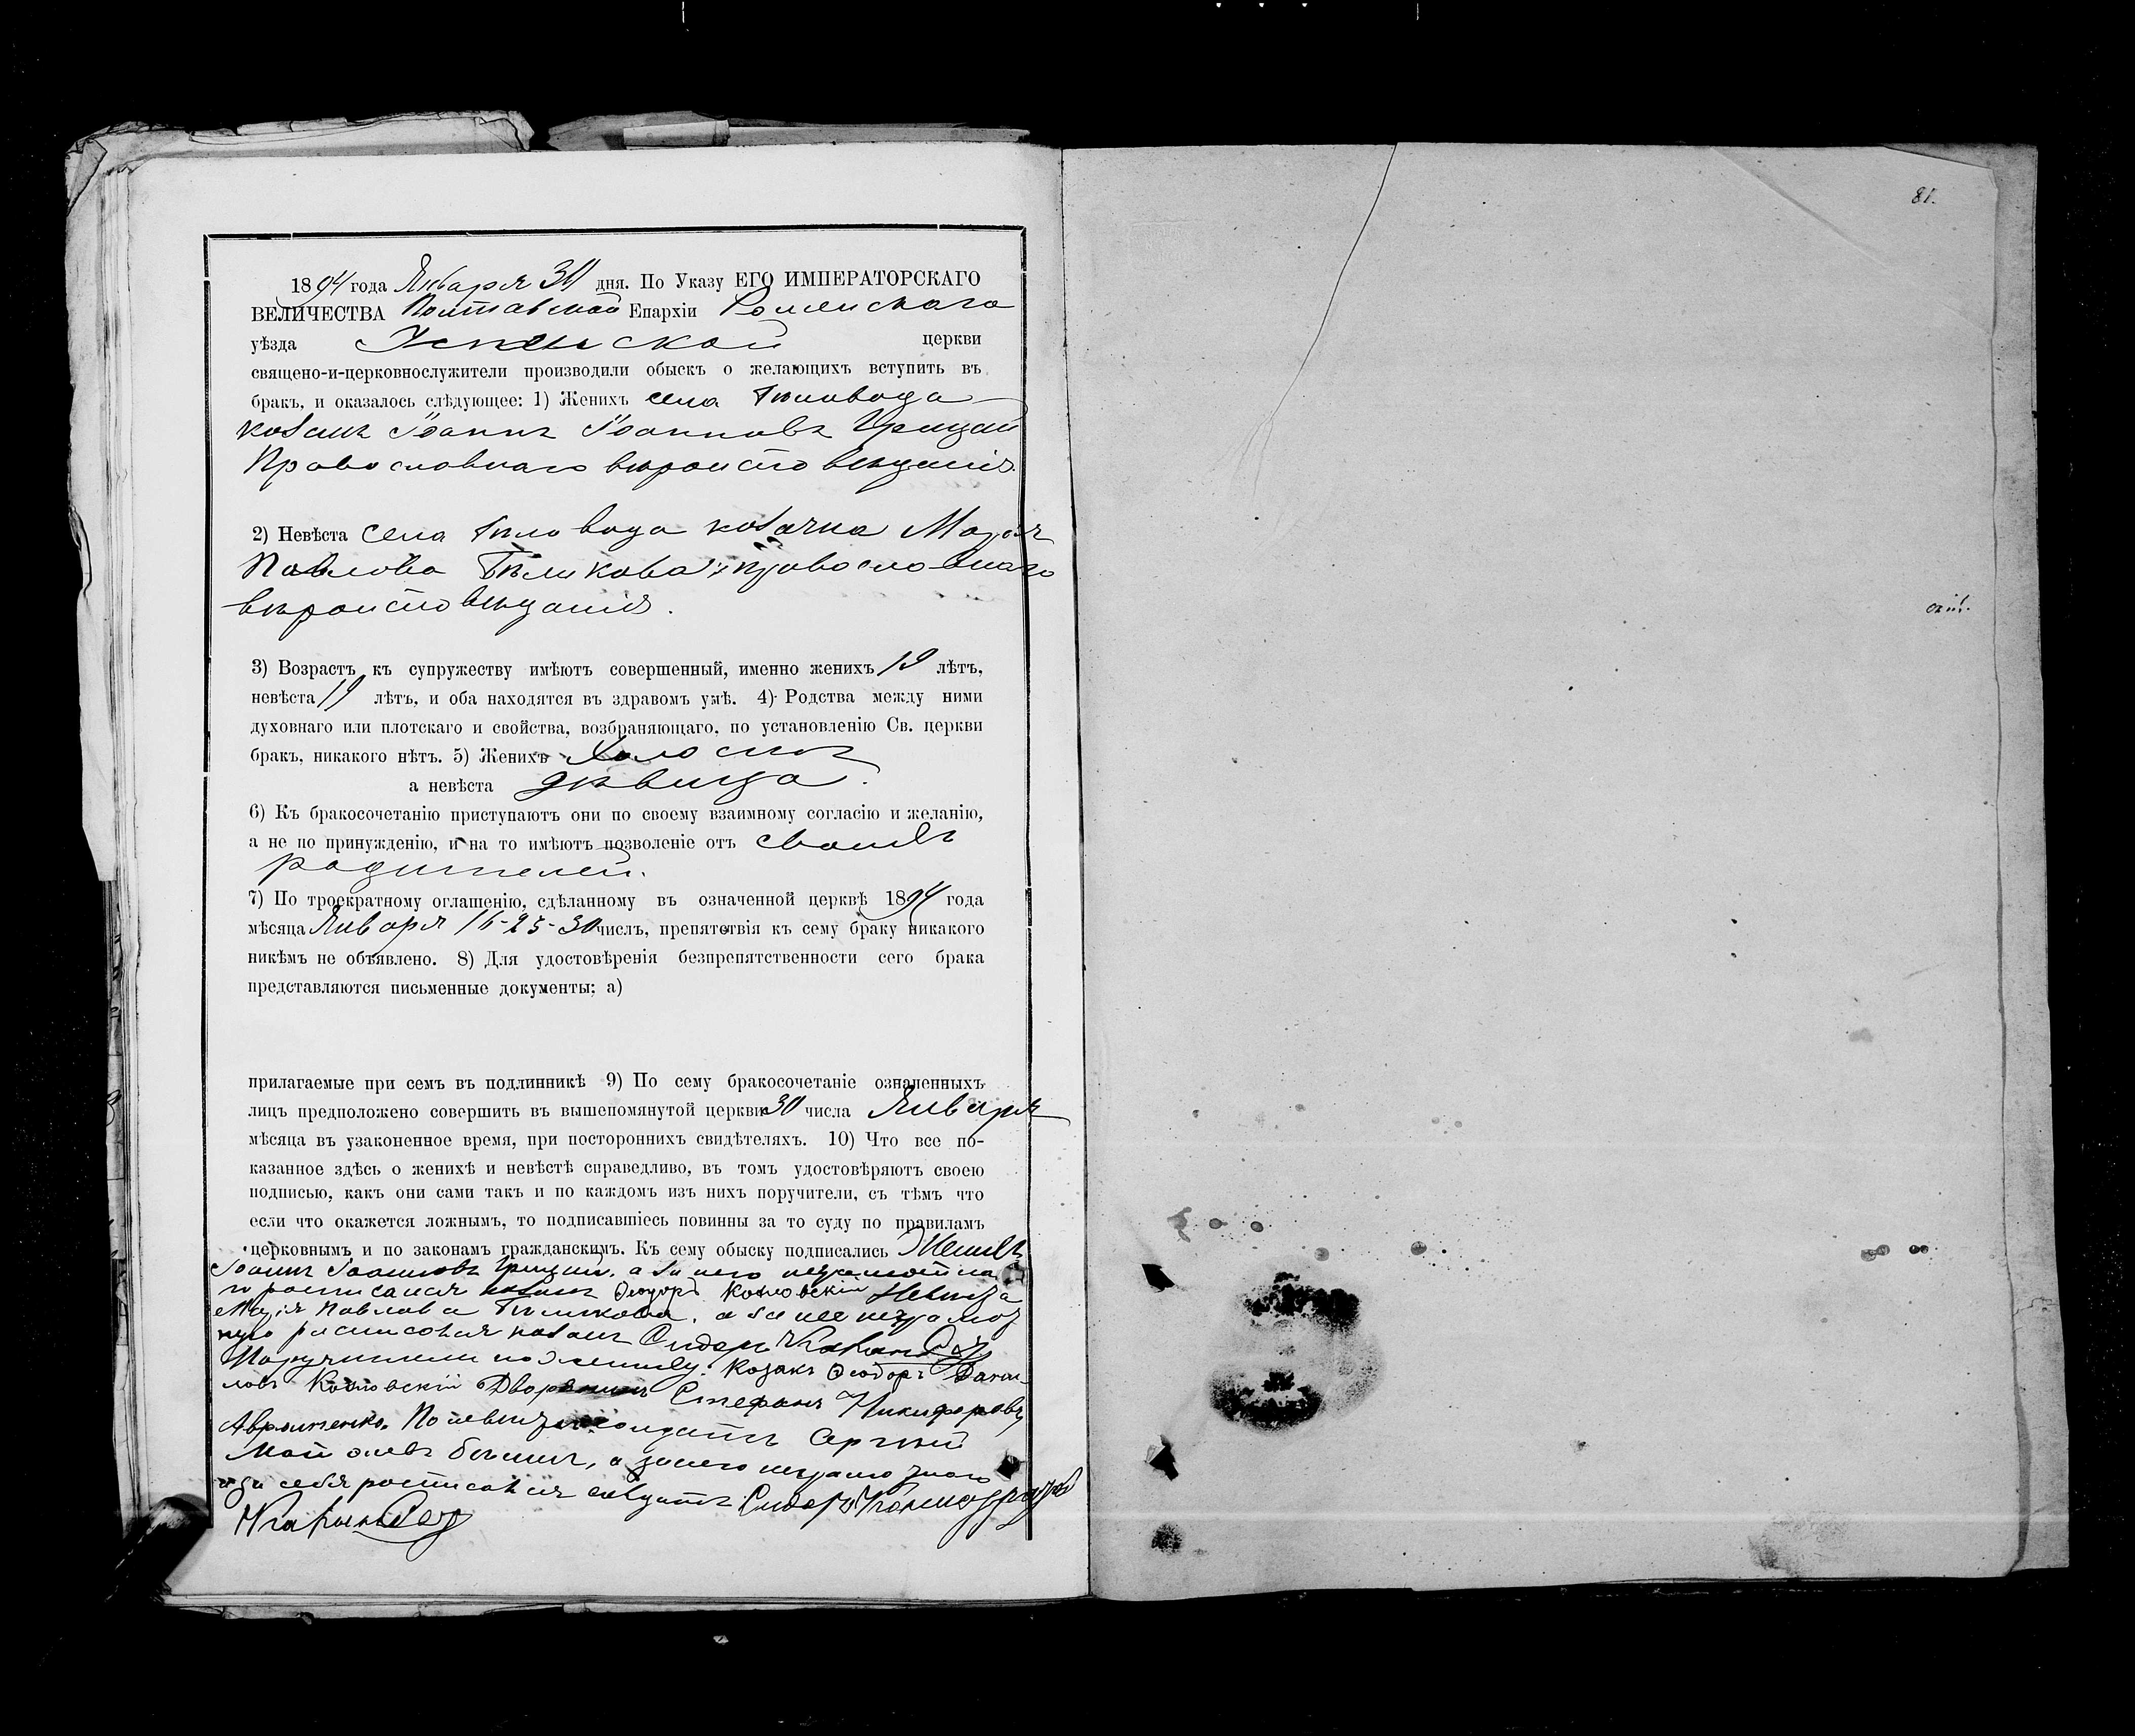 81.
1894 года Января 30 дня. По Указу ЕГО ИМПЕРАТОРСКАГО
ВЕЛИЧЕСТВА Полтавской Епархіи Роменскаго
уѣзда Успенской церкви
священо-и-церковнослужители производили обыскъ о желающихъ вступить въ
бракъ, и оказалось слѣдующее: 1) Женихъ села Бѣловода
козакъ Іоаннъ Іоанновъ Грицай
Православнаго вѣроисповѣданія.
2) Невѣста села Бѣловода козачка Марія
Павлова Бѣликова православнаго
вѣроисповѣданія.
3) Возрастъ къ супружеству имѣютъ совершенный, именно женихъ 19 лѣтъ,
невѣста 19 лѣтъ, и оба находятся въ здравомъ умѣ. 4) Родства между ними
духовнаго или плотскаго и свойства, возбраняющаго, по установленію Св. церкви
бракъ, никакого нѣтъ. 5) Женихъ Холостъ
а невѣста дѣвица.
6) Къ бракосочетанію приступаютъ они по своему взаимному согласію и желанію,
а не по принужденію, и на то имѣютъ позволеніе отъ своихъ
родителей.
7) По троекратному оглашенію, сдѣланному въ означенной церквѣ 1894 года
мѣсяца Января 16-23-30 числъ, препятствія къ сему браку никакого
никѣмъ не объявлено. 8) Для удостовѣренія безпрепятственности сего брака
представляются письменные документы: а)
прилагаемые при семъ въ подлинникѣ 9) По сему бракосочетаніе означенныхъ
лицъ предположено совершить въ вышепомянутой церкви 30 числа Января
мѣсяца въ узаконенное время, при постороннихъ свидѣтеляхъ. 10) Что все по-
казанное здѣсь о женихѣ и невѣстѣ справедливо, въ томъ удостовѣряютъ своею
подписью, какъ они сами такъ и по каждомъ изъ нихъ поручители, съ тѣмъ что
если что окажется ложнымъ, то подписавшіесь повинны за то суду по правиламъ
церковнымъ и по законамъ гражданскимъ. Къ сему обыску подписались Женихъ
Іоаннъ Іоанновъ Грицай, а за него неграмотна
го росписался козакъ Ѳеодоръ Козловскій Невѣста
Марія Павлова Бѣликова, а за нее неграмот
ную росписался козакъ Сидоръ
Поручители по женихѣ: Козакъ Ѳеодоръ
ловъ Козловскій Дворянинъ Стефанъ Никифоровъ
Авраменко. По невѣстѣ солдатъ Сергѣй
а за него неграмотнаго
и за себя росписался солдатъ Сидоръ